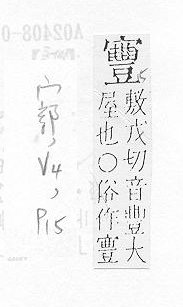 寷
5
敷戎切音豐大
屋也○俗作
宀部,V4,
P15